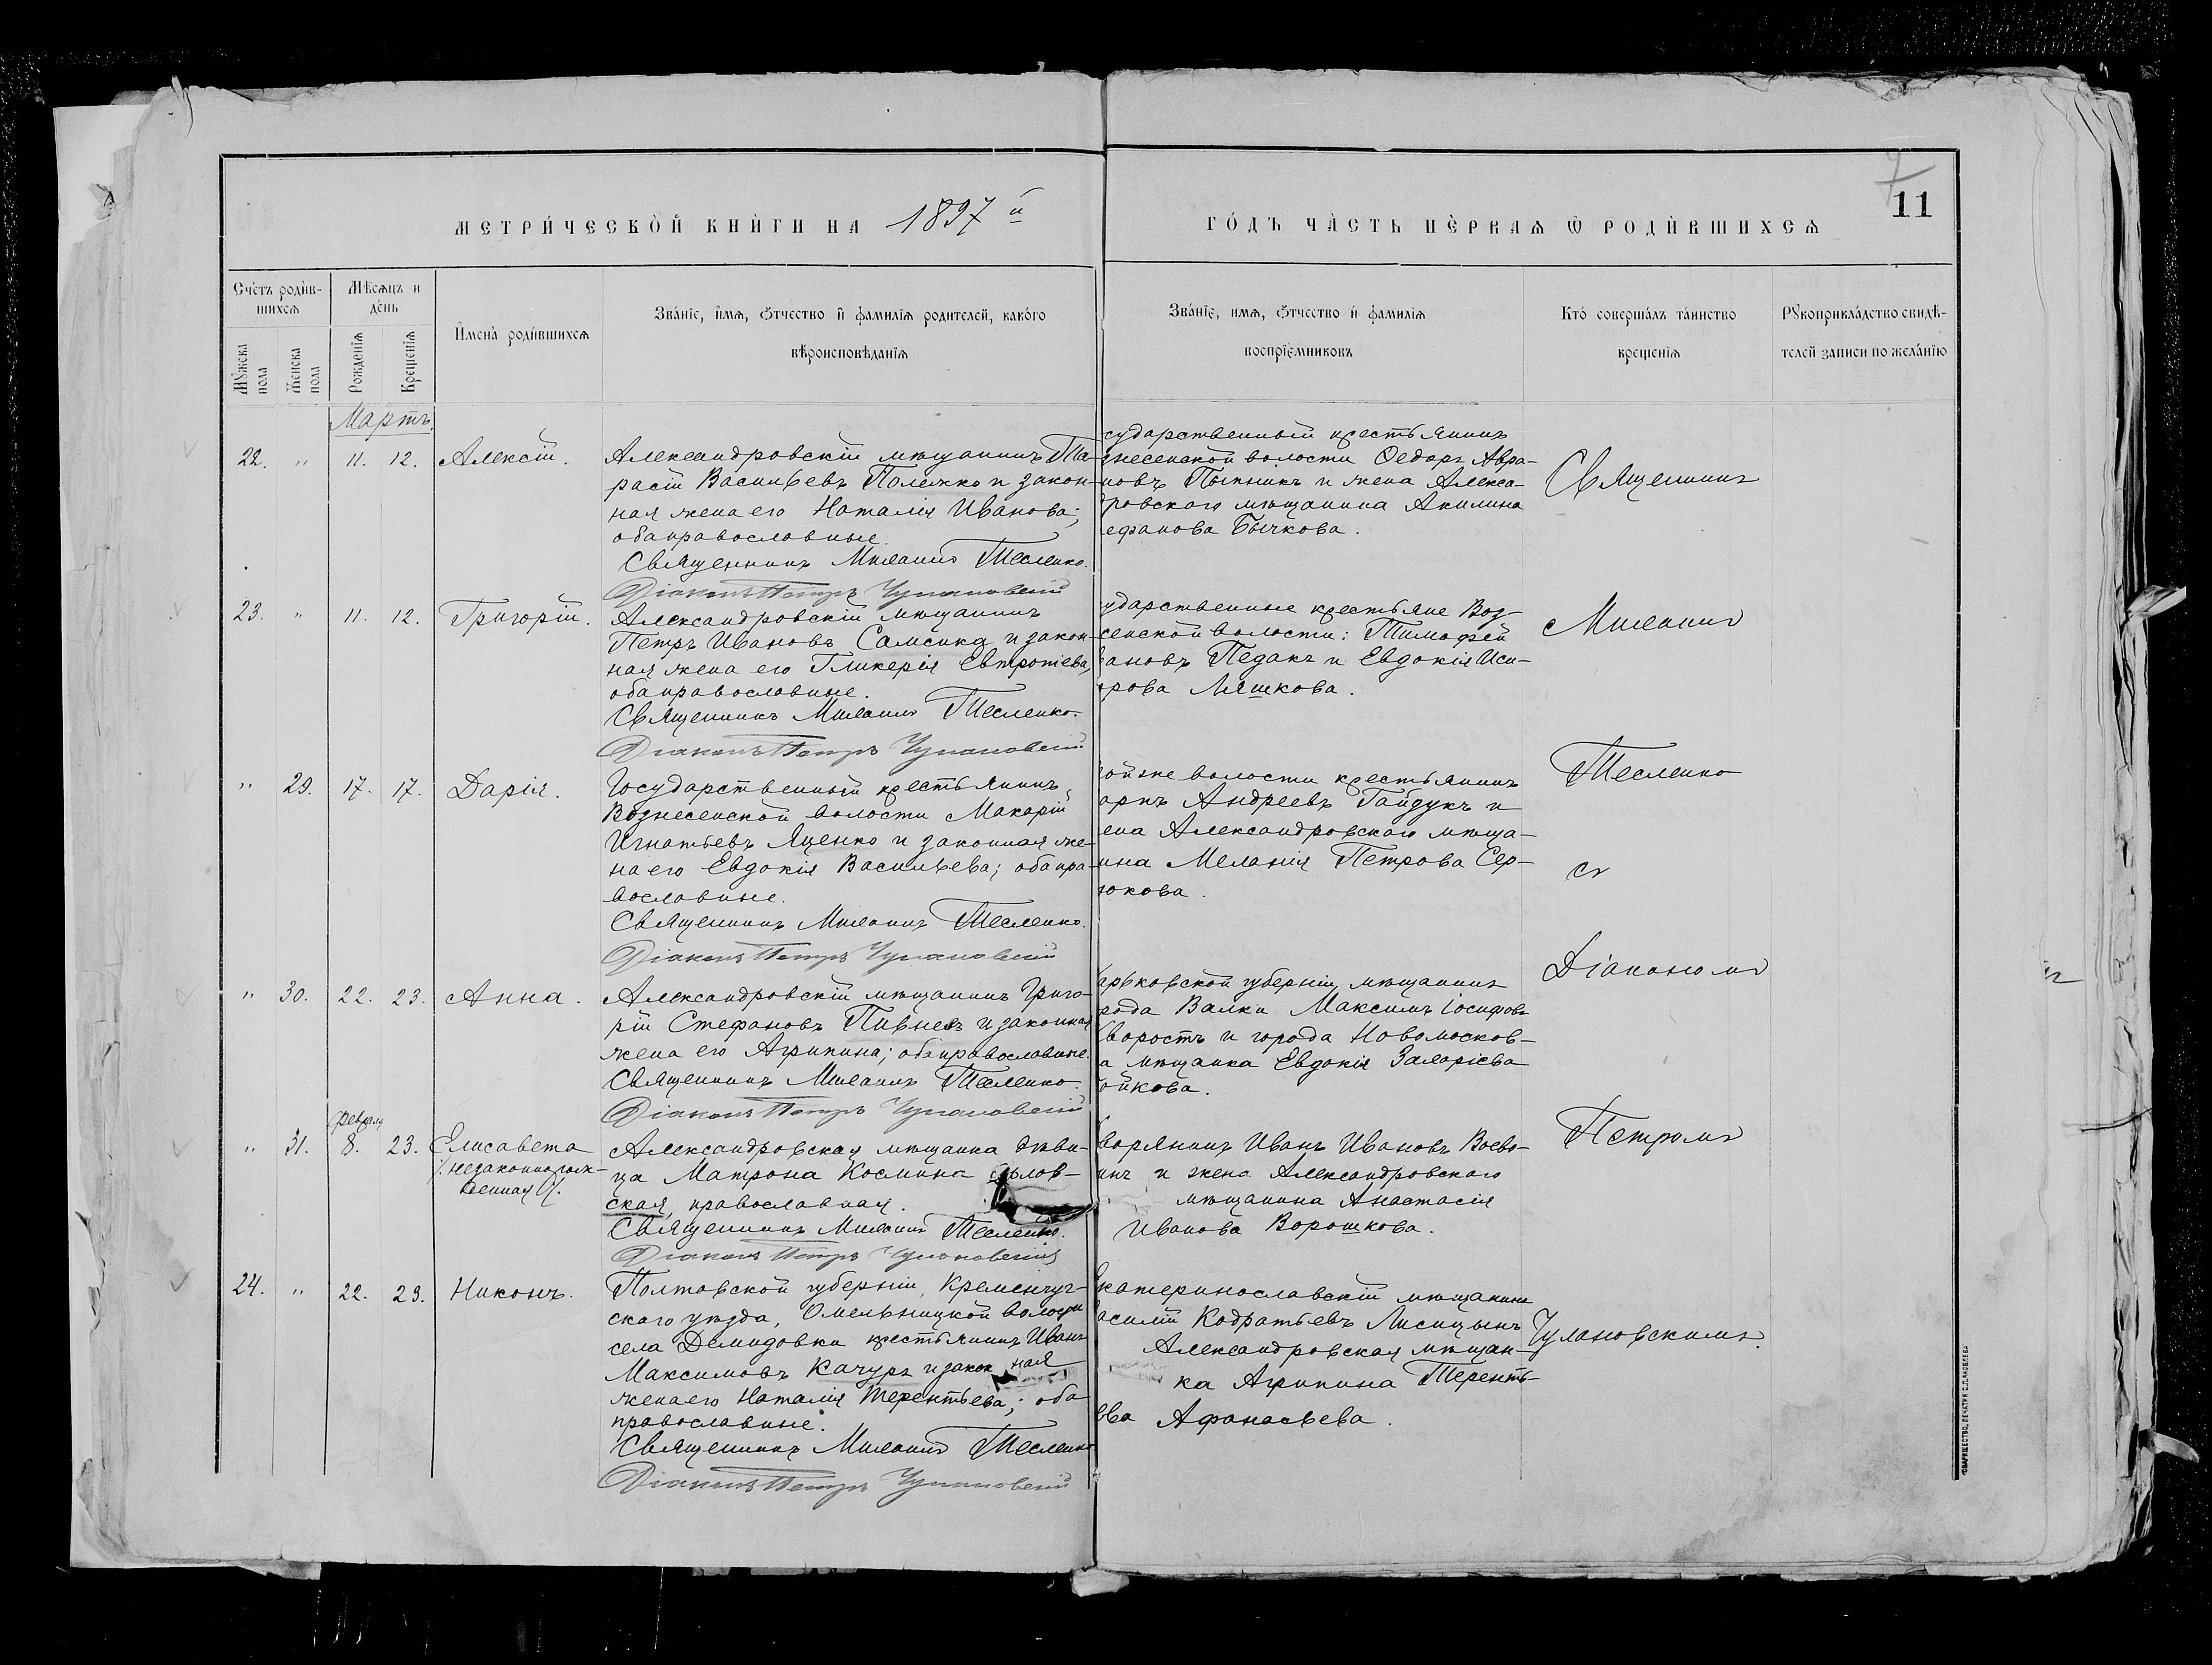 11
МЕТРИ́ЧЕСКОЙ КНИ́ГИ НА 1897 й
ГО́ДЪ ЧА́СТЬ ПЕ́РВАѦ Ѡ РОДИ́ВШИХСѦ
Сче́тъ роди́в-
шихсѧ
Мѣ́сѧцъ и
де́нь
Мꙋжеска
пола
Женска
пола
Рожденїѧ
Крещенїѧ
Имена̀ роди́вшихсѧ
Зва́нїе, и́мѧ, ѻ́тчество и҆ фами́лїѧ роди́телей, како́го
вѣроисповѣ́данїѧ
Зва́нїе, и́мѧ, ѻ́тчество и҆ фами́лїѧ
воспрїе́мниковъ
Кто́ соверша́лъ та́инство
креще́нїѧ
Рꙋкоприкла́дство свидѣ́-
телей за́писи по жела́нїю
Мартъ.
22. " 11. 12. Алексій.
Александровскій мѣщанинъ Та-
расій Васильевъ Полежко и закон-
ная жена его Наталія Иванова;
оба православные.
Священникъ Михаилъ Тесленко.
Діаконъ Петръ Чулановскій
сударственный крестьянинъ
знесенской волости Ѳедоръ Авра-
мовъ и жена Алекса-
дровскаго мѣщанина Акилина
ефанова Бычкова.
Священникъ
23. " 11. 12. Григорій.
Александровскій мѣщанинъ
Петръ Ивановъ Самсика и закон-
ная жена его Гликерія Евтропіева,
оба православные.
Священникъ Михаилъ Тесленко.
Діаконъ Петръ Чулановскій
ударственные крестьяне Воз-
сенской волости: Тимофей
вановъ Педакъ и Евдокія Иси-
рова Ляшкова.
Михаилъ
" 29. 17. 17. Дарія.
Государственный крестьянинъ
Вознесенской волости Макарій
Игнатьевъ Яценко и законная же-
на его Евдокія Васильева; оба пра-
вославные.
Священникъ Михаилъ Тесленко.
Діаконъ Петръ Чулановскій
той же волости крестьянинъ
арпъ Андреевъ Гайдукъ и
ена Александровскаго мѣща-
нина Меланія Петрова Сер-
юкова.
Тесленко
съ
" 30. 22. 23. Анна.
Александровскій мѣщанинъ Григо-
рій Стефановъ Пивневъ и законная
жена его Агрипина; оба православные.
Священникъ Михаилъ Тесленко.
Діаконъ Петръ Чулановскій
арьковской губерніи мѣщанинъ
рода Валки Максимъ Іосифовъ
Хворостъ и города Новомосков-
а мѣщанка Евдокія Захаріева
ойкова.
Діакономъ
Февраля
" 31. 8. 23. Елисавета
/. незаконнорож-
денная ./.
Александровская мѣщанка дѣви-
ца Матрона Космина
ская, православная.
Священникъ Михаилъ Тесленко.
Діаконъ Петръ Чулановскій
ворянинъ Иванъ Ивановъ Воево-
инъ и жена Александровскаго
мѣщанина Анастасія
Иванова Ворошкова.
Петромъ
24. " 22. 23. Никонъ.
Полтавской губерніи, Кременчуг-
скаго уѣзда, Омельницкой волости
села Демидовки крестьянинъ Иванъ
Максимовъ Качуръ и закон ная
жена его Наталія Терентьева; оба
православные.
Священникъ Михаилъ Тесленко
Діаконъ Петръ Чулановскій
Екатеринославскій мѣщанинъ
асилій Кодратьевъ Лисицынъ
Александровская мѣщан-
ка Агрипина Теренть-
ева Афанасьева.
Чулановскимъ.